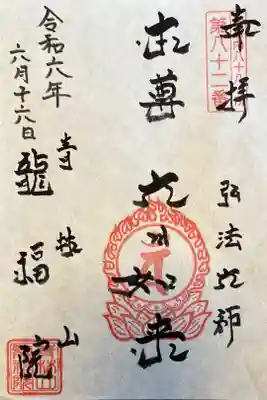 奉拝
第八十二番
弘法大師
本尊 大日如来
青林山
龍福院
令和六年
六月十六日